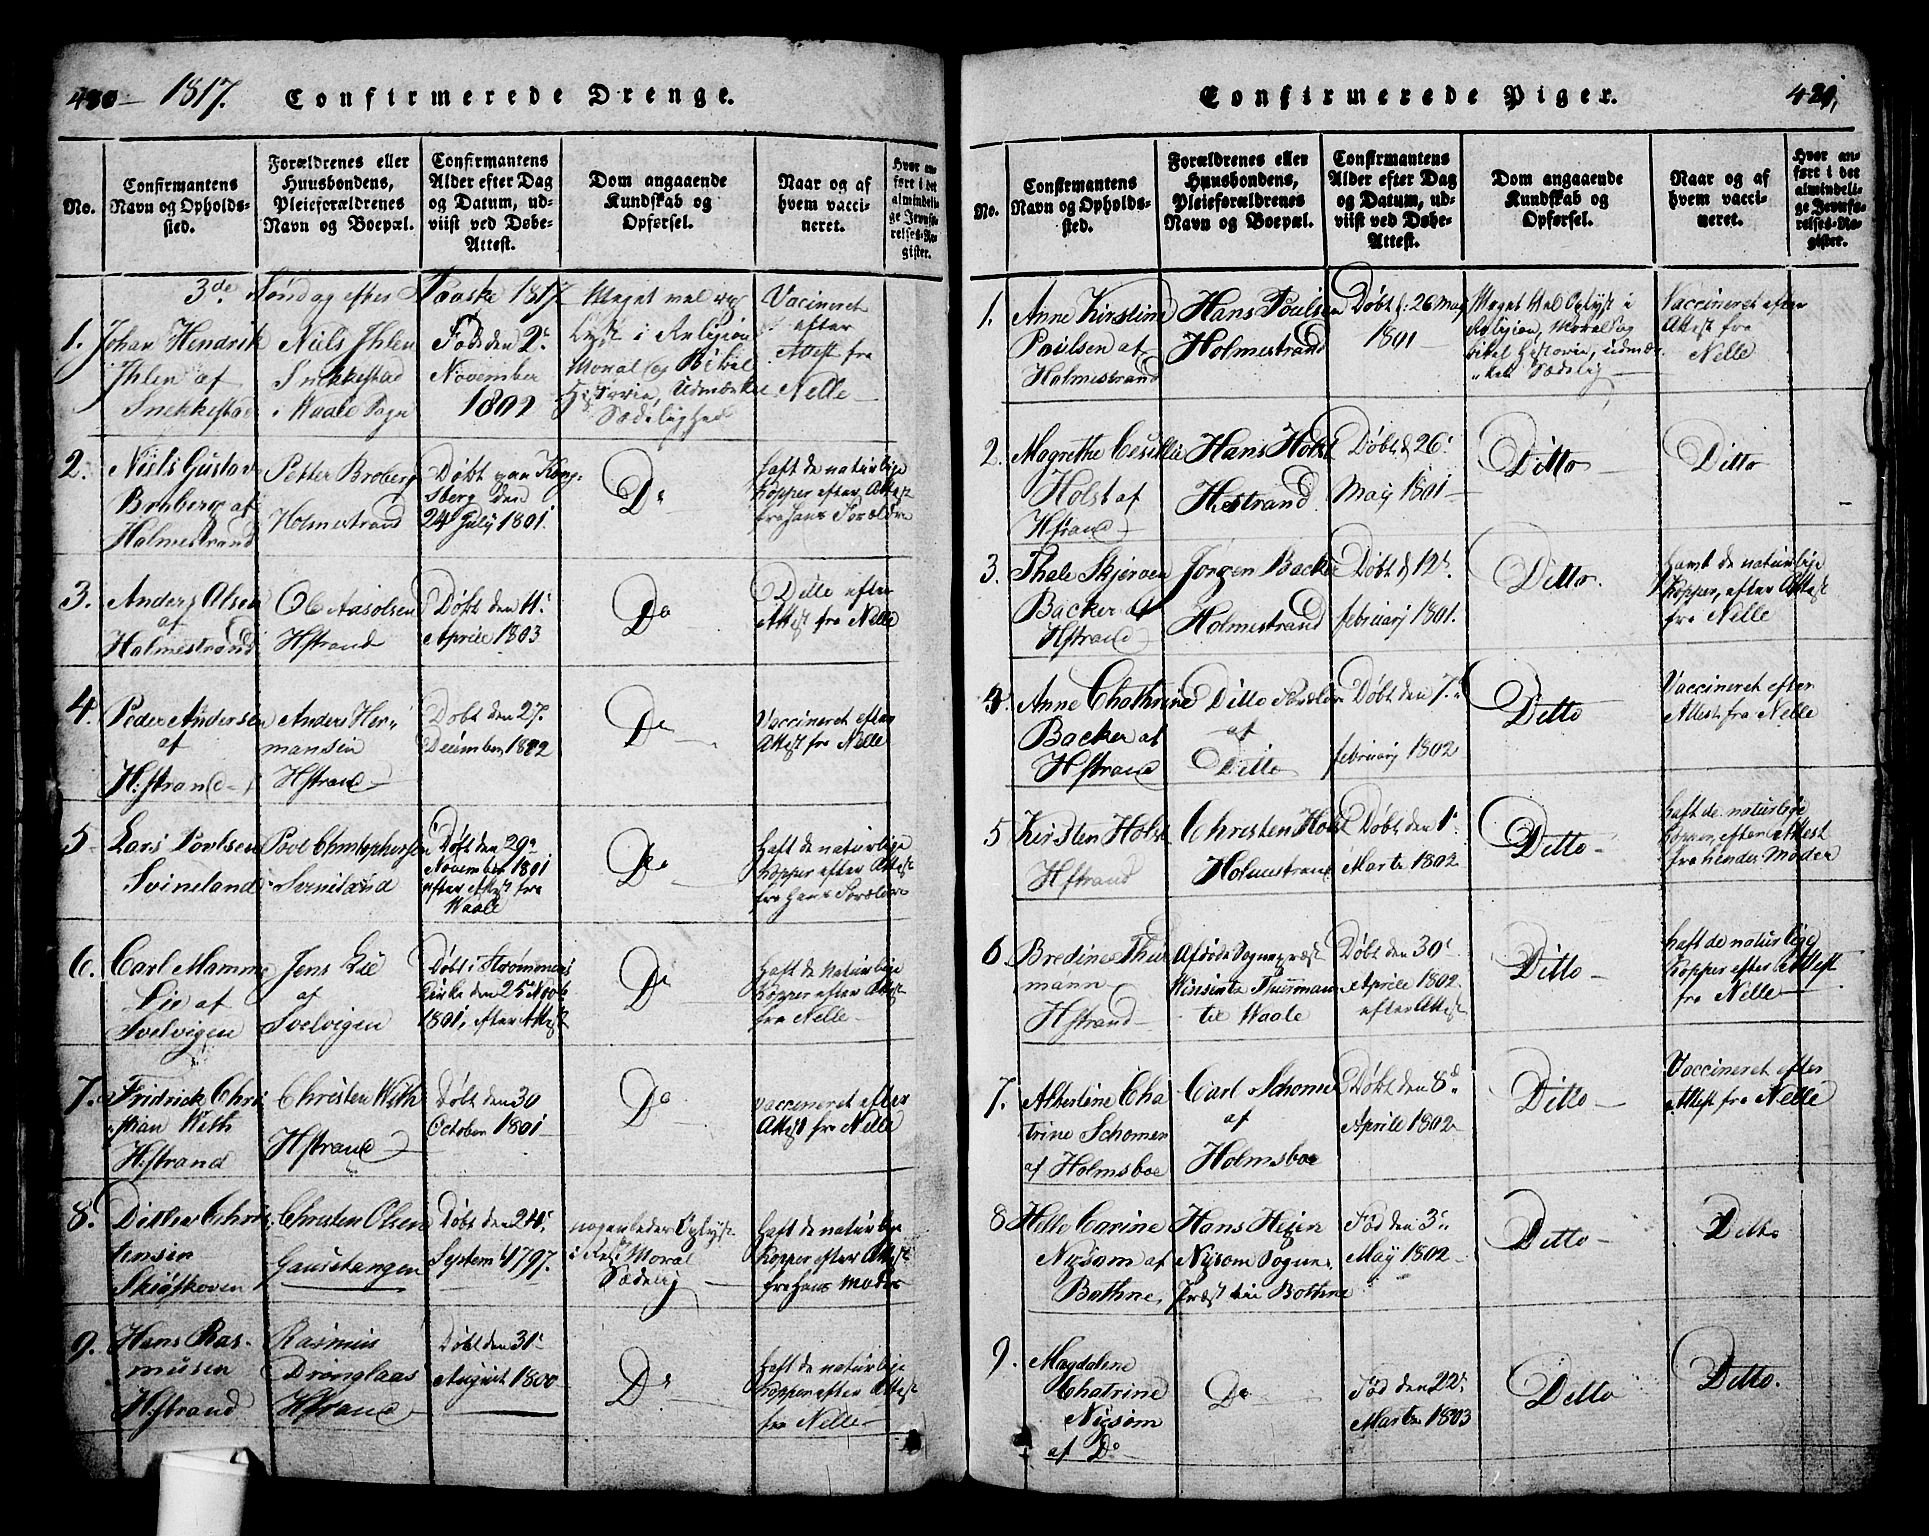 480 — 1817. Confirmerede Drenge.
No.
Confirmantens Navn og Opholdssted.
Forældrenes eller Huusbondens, Pleieforældrenes Navn og Boepæl.
Confirmantens Alder efter Dag og Datum, udviist ved Døbe-Attest.
Dom angaaende Kundskab og Opførsel.
Naar og af hvem vaccineret.
Hvor anført i det almindelige Jevnførelses-Register.
3de Søndag efter Paaske 1817
1. Johan Hendrik
Ihlen af
Snekkestad
Niels Ihlen
Snekkestad
i Waale Sogn
Født den 2.
November
1802
Meget vel op
lyst i Religion
Moral og Bibel
Historie, Udmærke
Sædelighed
Vacineret
efter
Attest fra
Nelle
2. Niels Gustav
Broberg af
Holmestrand
Petter Broberg
Holmestrand
Døbt paa Kong
sberg den
24 July 1801.
Do
haft de naturlige
Kopper efter Attest
fra hans Forældre
3. Anders Olsen
af
Holmestrand
Ole Aasolsen
Hstrand
Døbt den 11.
Aprile 1803
Do
Ditto efter
Attest fra Nelle
4. Peder Andersen
af
H:strand
Anders Her-
mansen
Hstrand
Døbt den 27.
December 1802
Do
Vaccineret efter
Attest fra Nelle
5 Lars Povlsen
Svineland
Povl Christophersen
Svineland
Døbt den 29
November 1801
efter attest fra
Waale
Do
haft de naturlige
Kopper efter Attest
fra hans Forældre
6. Carl Mamme
Lie af
Svelvigen
Jens Lie
af
Svelvigen
Døbt i Strømmens
Kirke den 25
1801, efter Attest
Do
haft de naturlige
Kopper efter Attest
fra Nelle
7. Fridrick Chri
stian With
H:strand
Christen With
Hstrand
Døbt den 30
October 1801
Do
vaccineret efter
Attest fra Nelle
8. Ditlev Chris
tensen
Skiøsthoven
Christen Olsen
Gausetangen
Døbt den 24.
Septem 1797.
nogenledes Oplyst
i Rel: Moral
Sædelig
haft de naturlige
Kopper efter Attest
fra hans Moder
9. Hans Ras-
musen
H:strand
Rasmus
Dronglaas
Hstrand
Døbt den 31.
August 1800
Do
haft de naturlige
Kopper efter Attest
fra Nelle
Confirmerede Piger. 421,
No.
Confirmantens Navn og Opholdssted.
Forældrenes eller Huusbondens, Pleieforældrenes Navn og Boepæl.
Confirmantens Alder efter Dag og Datum, udviist ved Døbe-Attest.
Dom angaaende Kundskab og Opførsel.
Naar og af hvem vaccineret.
Hvor anført i det almindelige Jevnførelses-Register.
1. Anne Kirstine
Poulsen af
Holmestrand
Hans Poulsen
Holmestrand
Døbt d: 26 May
1801
Meget Vel Oplyst i
Religion, Moral og
Bibel Historie, udmær
ket Sædelig
Vaccineret efter
Attest fra
Nelle
2. Magrethe Cesillie
Holst af
Hstrand
Hans Holst
H:strand
Døbt d 26.
May 1801
Ditto
Ditto
3. Thale Skjeroen
Backer af
Hstrand
Jørgen Backer
Holmestrand
Døbt d 12.
februarj 1801.
Ditto.
hawt de naturlige
Kopper, efter Attest
fra Nelle
4. Anne Chathrine
Backer af
Hstrand
Ditto Forældre
af
Ditto
Døbt den 7.
februarj 1802
Ditto
Vaccineret efter
Attest fra Nelle
5 Kirsten Holst
Hstrand
Christen Holst
Holmestrand
Døbt den 1.
Marts 1802
Ditto
haft de naturlige
Kopper, efter Attest
fra hendes Moder
6. Bredine Thur
mann
Hstrand
Afdøde Sognepræst
Winsents Thurmann
til Waale
Døbt den 30.
Aprile 1802
efter Attest
Ditto
haft de naturlige
Kopper efter Attest
fra Nelle
7. Albertine Cha
trine Schomer
af Holmsboe
Carl Schomer
af
Holmsboe
Døbt den 8d
Aprile 1802
Ditto
Vaccineret efter
Attest fra Nelle
8 Helle Carine
Nysom af
Bothne,
Hans
Nysom Sogne
Præst til Bothne
Fød den 3.
May 1802
Ditto
Ditto
9. Magdalene
Chatrine
Nysom
af Do
Do
Fød den 22.
Marts 1803
Ditto
Ditto.